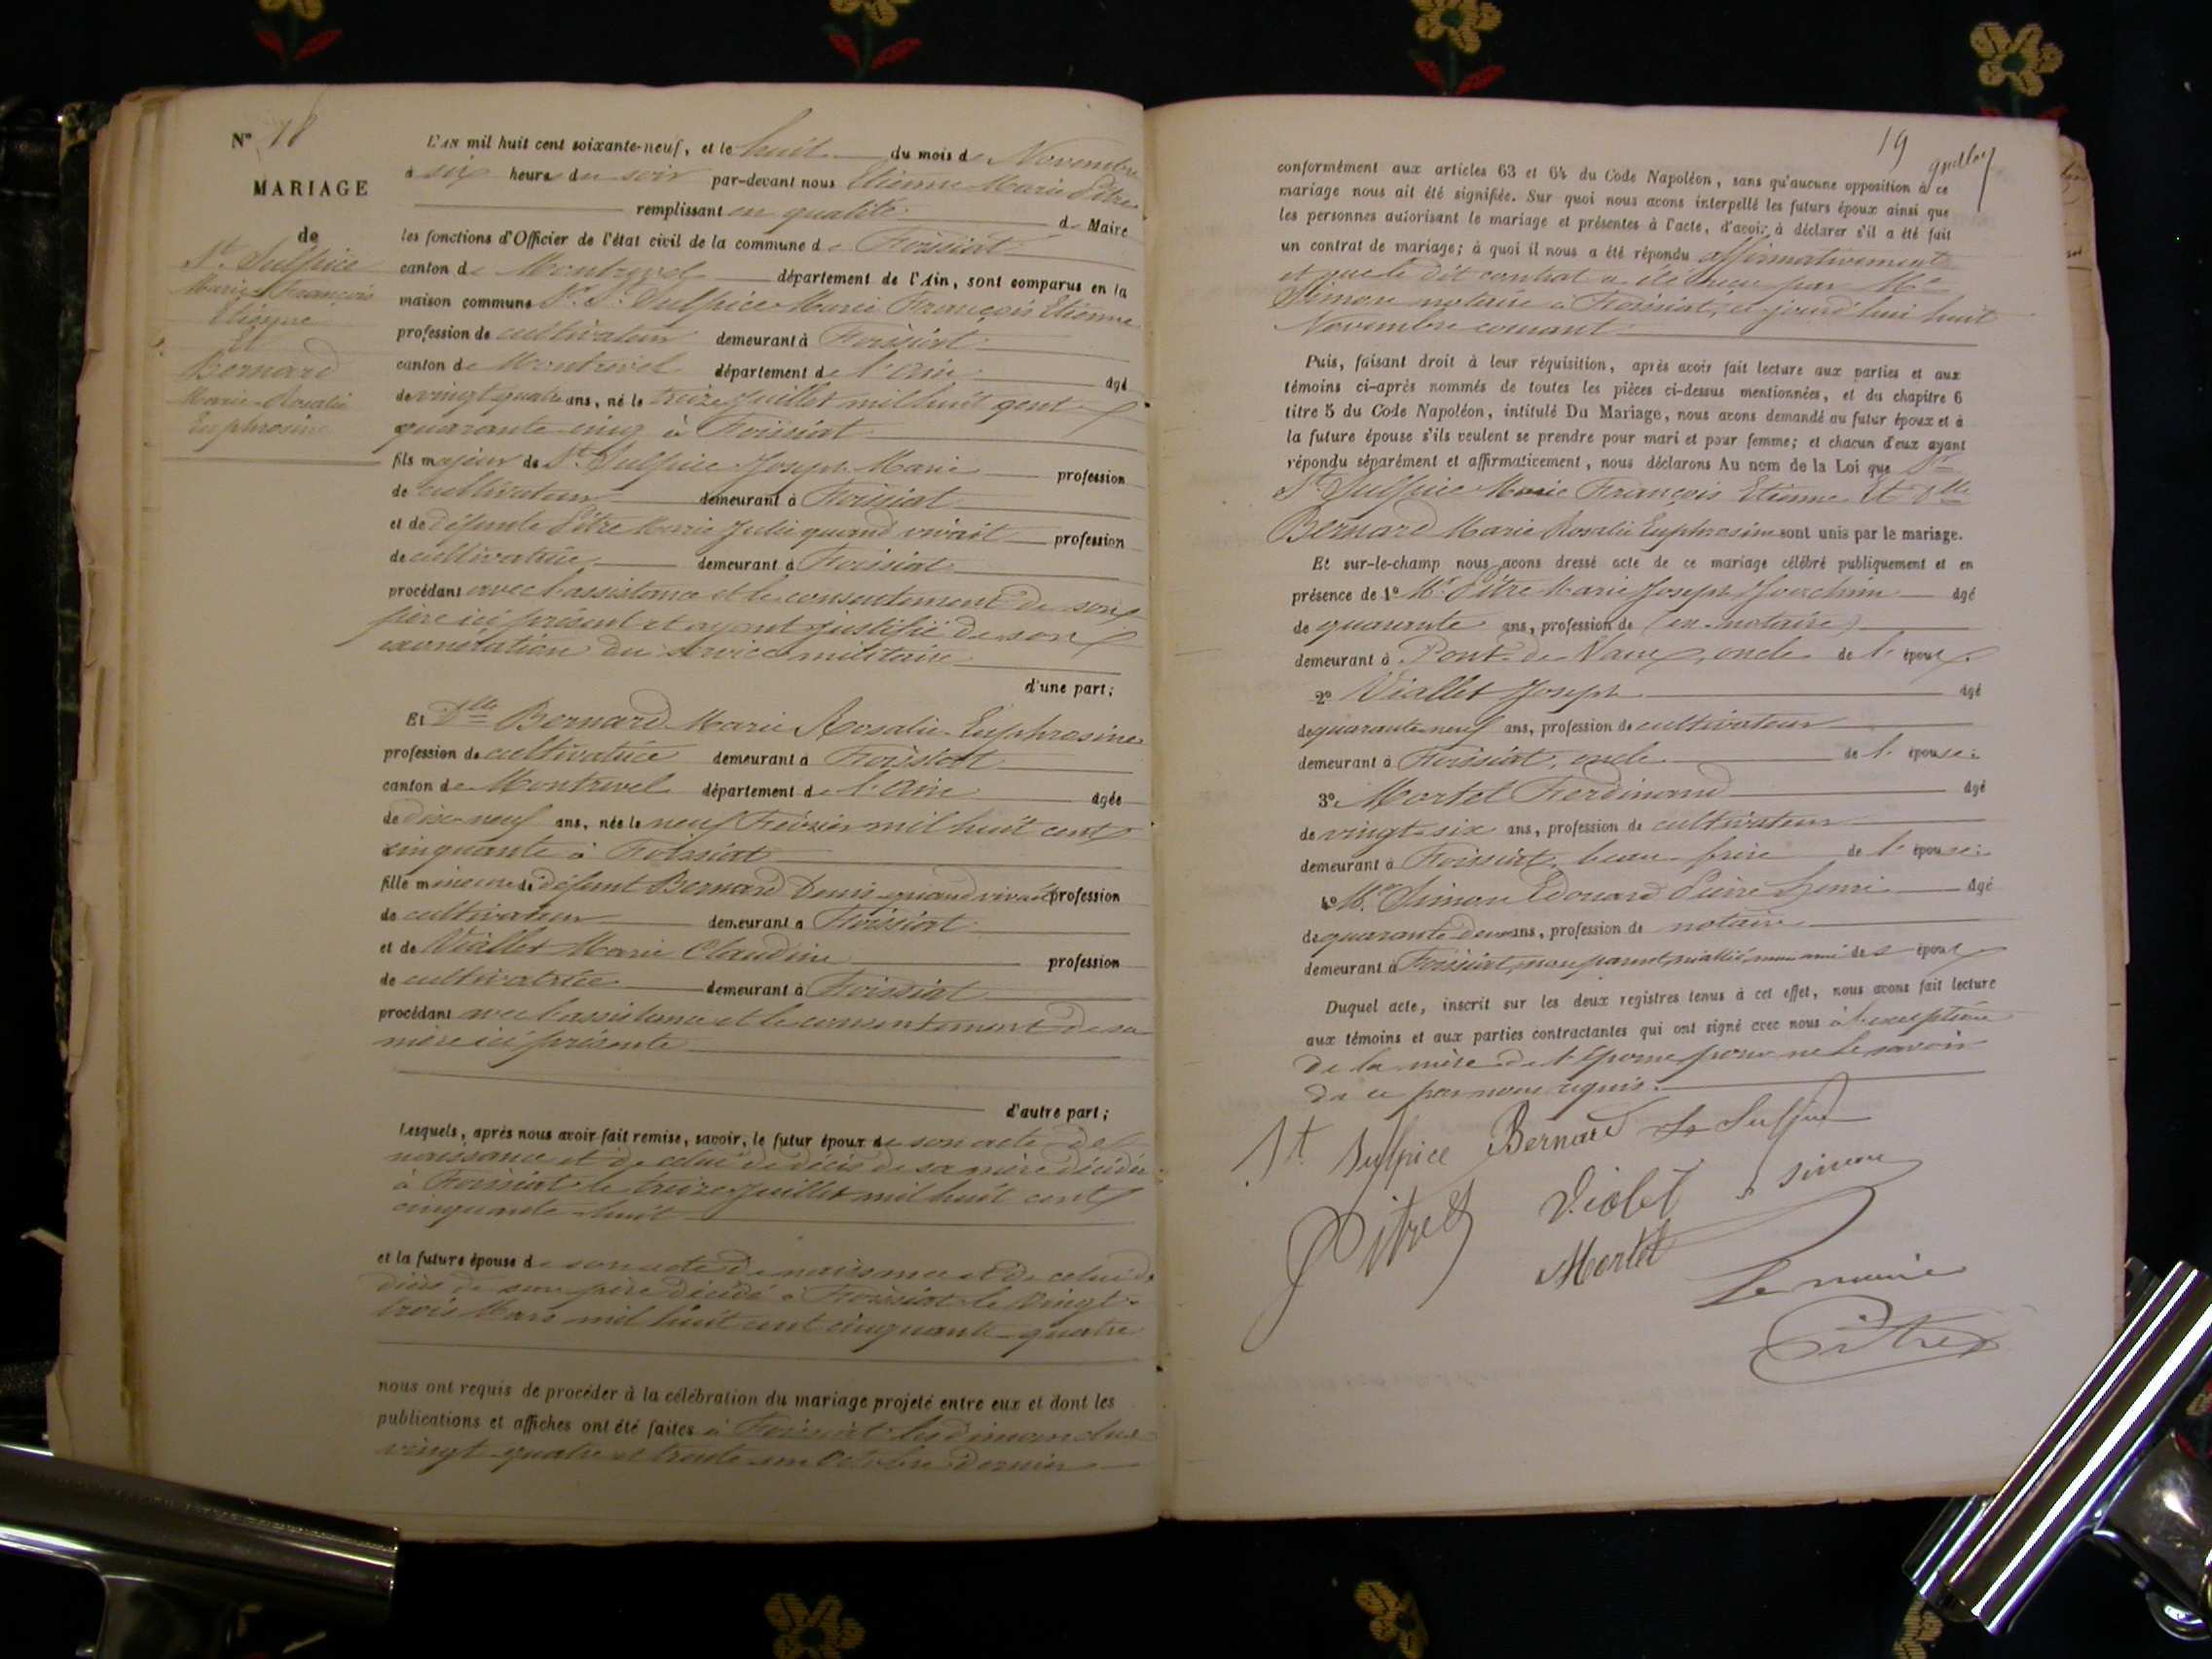 N° 18
MARIAGE
de
St. Sulpice
Marie François
Etienne
Et
Bernard
Marie Rosalie
Euphrosine
L'AN mil huit cent soixante-neuf, et le huit du mois de Novembre
à six heures du soir par-devant nous Etienne Marie Pitre
remplissant en qualité de Maire
les fonctions d'Officier de l'état civil de la commune de Foissiat
canton de Montrevel département de l'Ain, sont comparus en la
maison commune Sr. St. Sulpice Marie François Etienne
profession de cultivateur demeurant à Foissiat
canton de Montrevel département de l'Ain âgé
de vingt quatre ans, né le treize Juillet mil huit cent
quarante cinq à Foissiat
fils majeur de St. Sulpice Joseph Marie profession
de cultivateur demeurant à Foissiat
et de défunte Pitre Marie Julie quand vivait profession
de cultivatrice demeurant à Foissiat
procédant avec l'assistance et le consentement de son
père ici présent et ayant justifié de son
exonération du service militaire
d'une part;
Et Dlle Bernard Marie Rosalie Euphrosine
profession de cultivatrice demeurant à Foissiat
canton de Montrevel département de l'Ain âgée
de dix-neuf ans, née le neuf Février mil huit cent
cinquante à Foissiat
fille mineure de défunt Bernard Denis quand vivait profession
de cultivateur demeurant à Foissiat
et de Viallet Marie Claudine profession
de cultivatrice demeurant à Foissiat
procédant avec l'assistance et le consentement de sa
mère ici présente
d'autre part;
Lesquels, après nous avoir fait remise, savoir, le futur époux de son acte de
naissance et de celui de décès de sa mère décédée
à Foissiat le treize Juillet mil huit cent
cinquante huit
et la future épouse de son acte de naissance et de celui de
décès de son père décédé à Foissiat le vingt
trois Mars mil huit cent cinquante-quatre
nous ont requis de procéder à la célébration du mariage projeté entre eux et dont les
publications et affiches ont été faites à Foissiat les dimanches
vingt quatre et trente un Octobre dernier
19
conformément aux articles 63 et 64 du Code Napoléon, sans qu'aucune opposition à ce
mariage nous ait été signifiée. Sur quoi nous avons interpellé les futurs époux ainsi que
les personnes autorisant le mariage et présentes à l'acte, d'avoir à déclarer s'il a été fait
un contrat de mariage; à quoi il nous a été répondu affirmativement
et que le dit contrat a été reçu par Me
Simon notaire à Foissiat, ce jourd'hui huit
Novembre courant
Puis, faisant droit à leur réquisition, après avoir fait lecture aux parties et aux
témoins ci-après nommés de toutes les pièces ci-dessus mentionnées, et du chapitre 6
titre 5 du Code Napoléon, intitulé Du Mariage, nous avons demandé au futur époux et à
la future épouse s'ils veulent se prendre pour mari et pour femme; et chacun d'eux ayant
répondu séparément et affirmativement, nous déclarons Au nom de la Loi que Sr
St Sulpice Marie François Etienne Et Dlle
Bernard Marie Rosalie Euphrosine sont unis par le mariage.
Et sur-le-champ nous avons dressé acte de ce mariage célébré publiquement et en
présence de 1° Mr. Pitre Marie Joseph Joachim âgé
de quarante ans, profession de (ex-notaire)
demeurant à Pont-de-Vaux, oncle de l'époux.
2° Viallet Joseph âgé
de quarante neuf ans, profession de cultivateur
demeurant à Foissiat, oncle de l'épouse.
3° Mortel Ferdinand âgé
de vingt-six ans, profession de cultivateur
demeurant à Foissiat, beau-frère de l'épouse.
4° Mr. Simon Edouard Pierre Henri âgé
de quarante deux ans, profession de notaire
demeurant à Foissiat, non parent, ni allié mais ami des époux
Duquel acte, inscrit sur les deux registres tenus à cet effet, nous avons fait lecture
aux témoins et aux parties contractantes qui ont signé avec nous à l'exception
de la mère de l'épouse pour ne le savoir
de ce par nous requis.
St Sulpice Bernard St Sulpice
Pitre Violet Simon
Mortel
Le maire
Pitre